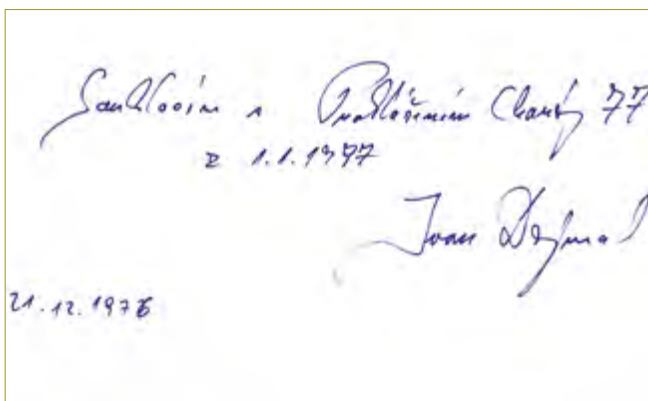 Souhlasím s Prohlášením Charty 77
z 1.1.1977
Ivan Dejmal
21.12.1976